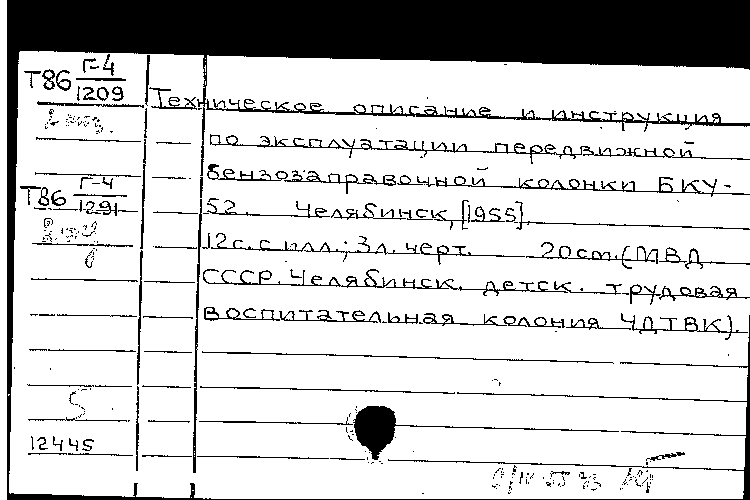 Т86 Г-4/1209
2 экз.
Техническое описание и инструкция
по эксплуатации передвижной
бензозаправочной колонки БКУ-
52. Челябинск, [1955].
12 с. с илл.; 3 л. черт. 20 см. (МВД
СССР. Челябинск. детск. трудовая
воспитательная колония ЧДТВК).
Т86 Г-4/1291
5
12445